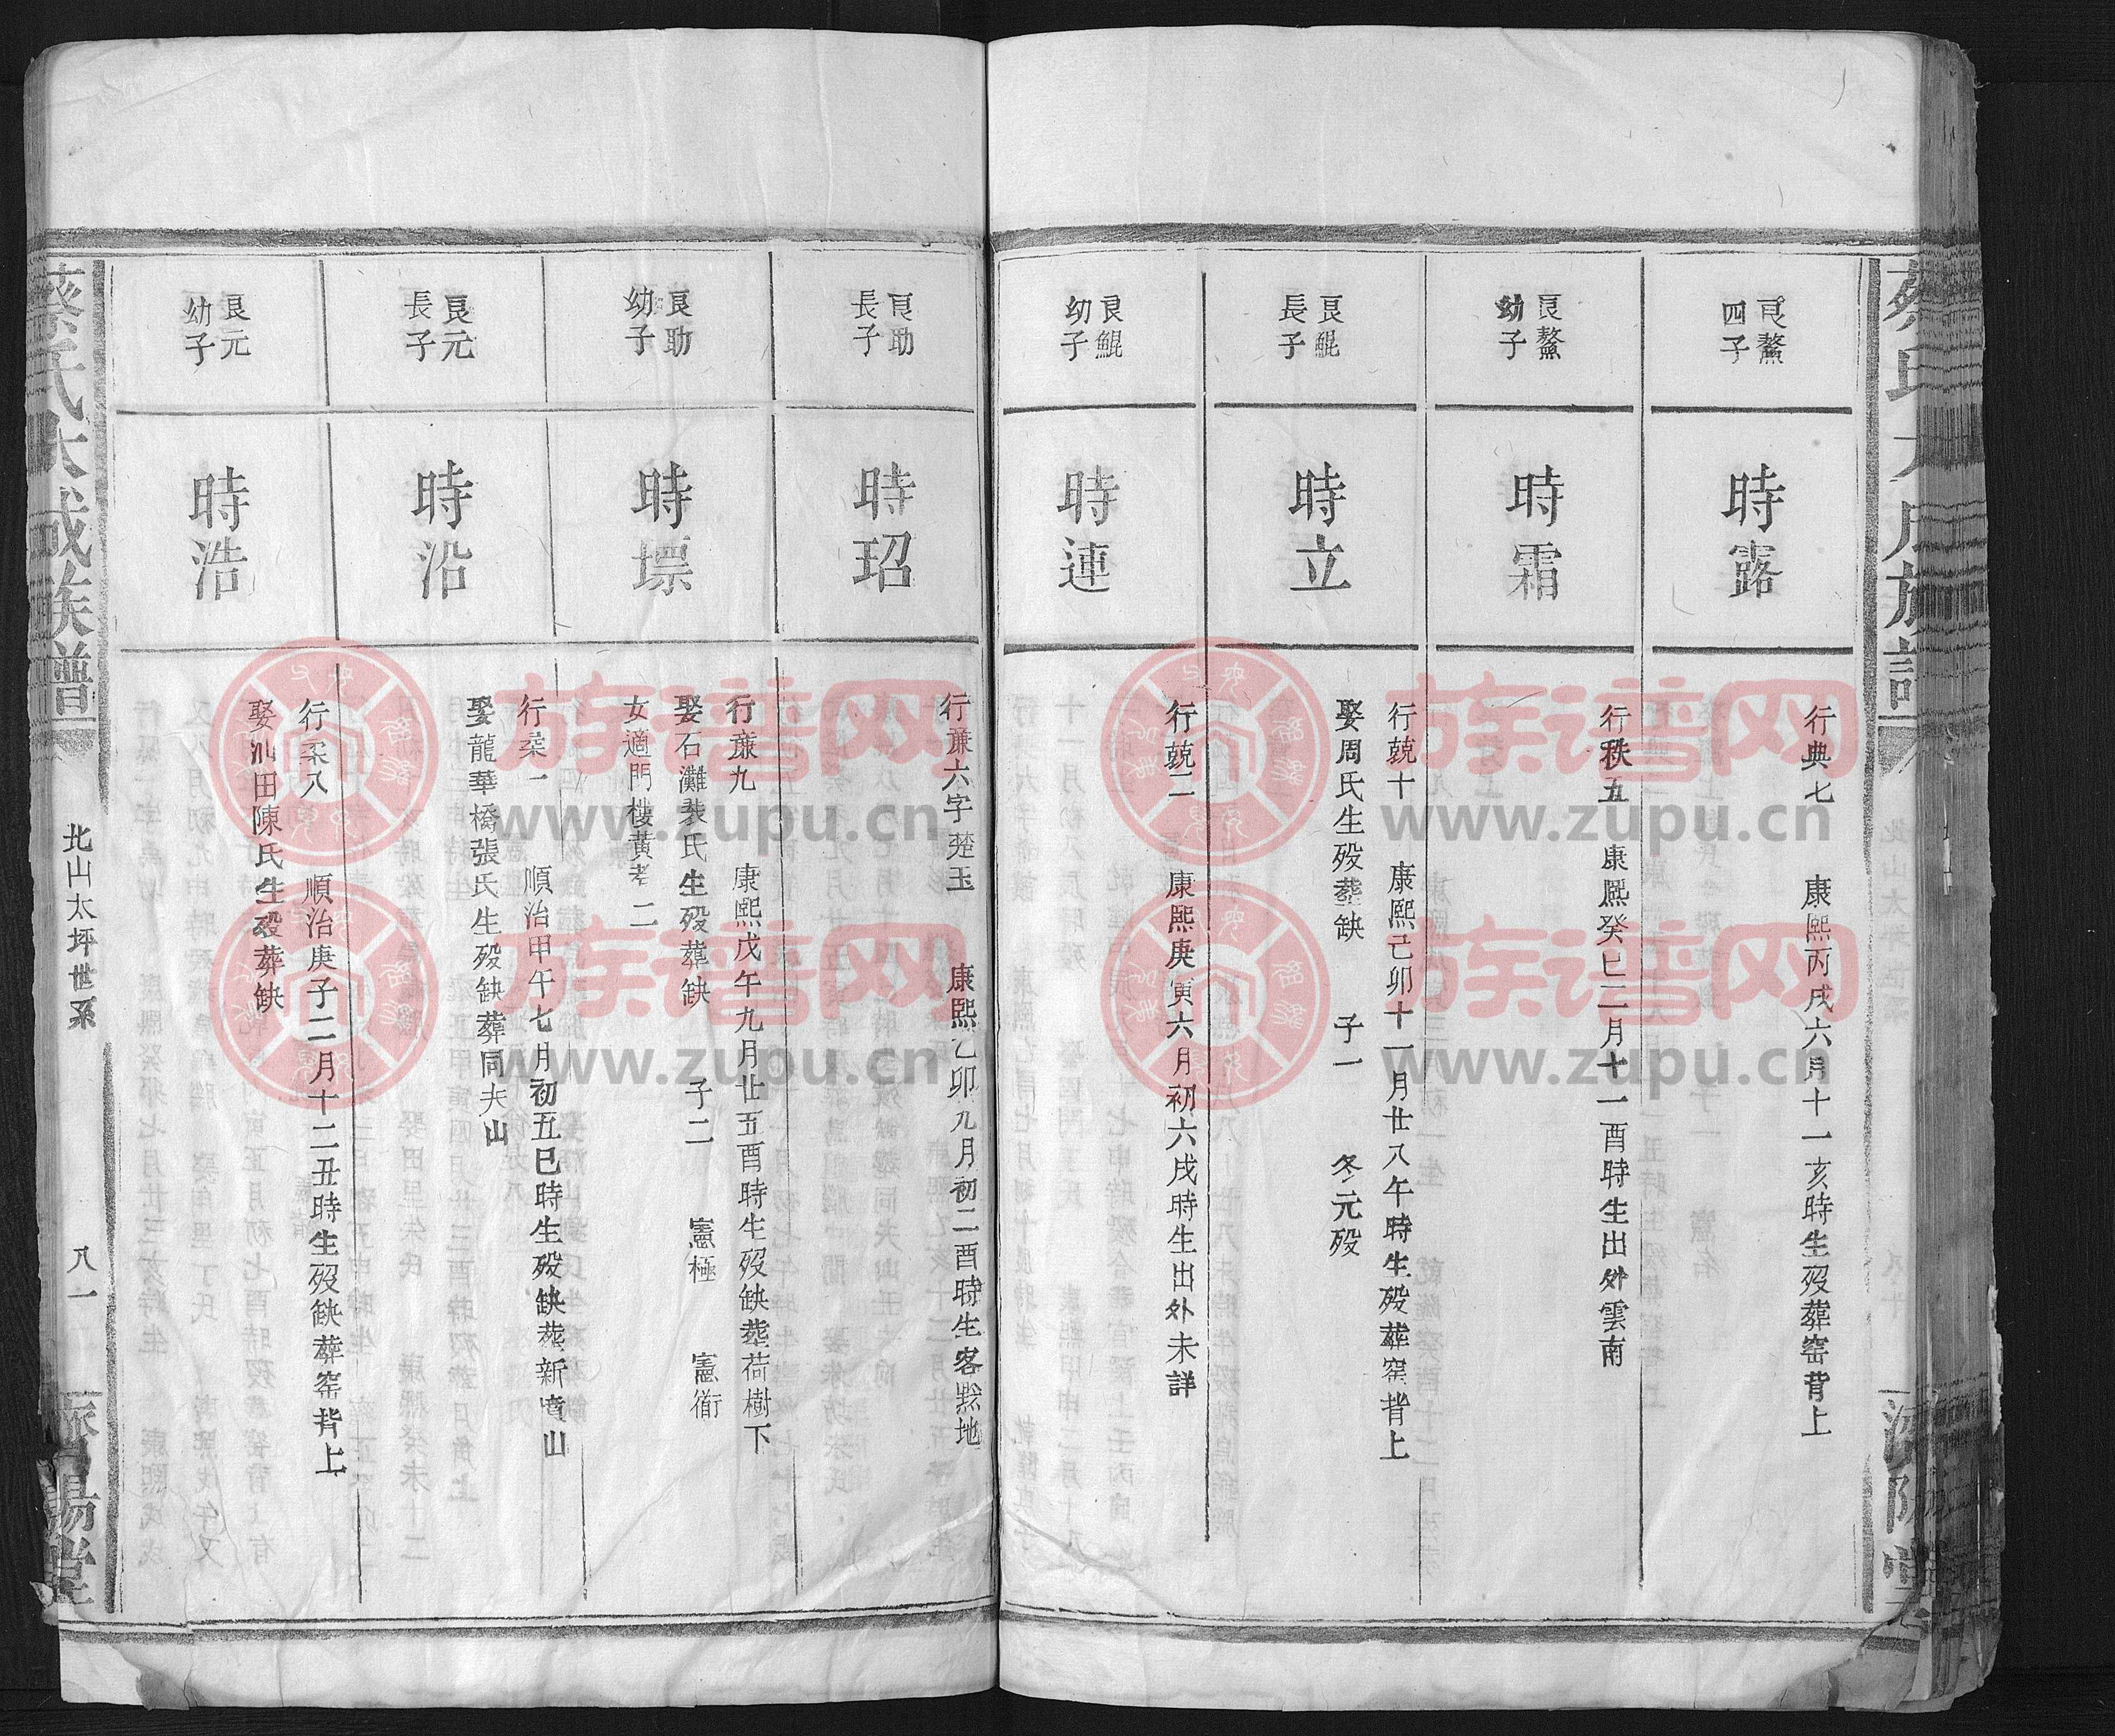 良鰲
四子
時露
行典七 康熙丙戌六月十一亥時生歿葬窑背上
良鰲
幼子
時霜
行秩五 康熙癸巳二月十一酉時生出外雲南
良鯤
長子
時立
行兢十 康熙己卯十一月廿八午時生歿葬窑背上
娶周氏生歿葬缺 子一 冬元歿
良鯤
幼子
時連
行兢二 康熙庚寅六月初六戌時生出外未詳
良助
長子
時玿
行蕭六字 玉 康熙乙卯九月初二酉時生客黟地
良助
幼子
時墂
行蕭九 康熙戊午九月廿五酉時生歿缺葬荷樹下
娶石灘裴氏生歿葬缺 子二 憲極 憲衜
女適門樓黄老二
良元
長子
時沿
行柔一 順治甲午七月初五巳時生歿缺葬新 山
娶龍華橋張氏生歿缺葬同夫山
良元
幼子
時浩
行柔八 順治庚子二月十二丑時生歿缺葬窑背上
娶 田陳氏生歿葬缺
蔡氏大成族譜
北山太坪世系
八一
濟陽堂
族谱网
www.zupu.cn
族谱网
www.zupu.cn
族谱网
www.zupu.cn
族谱网
www.zupu.cn